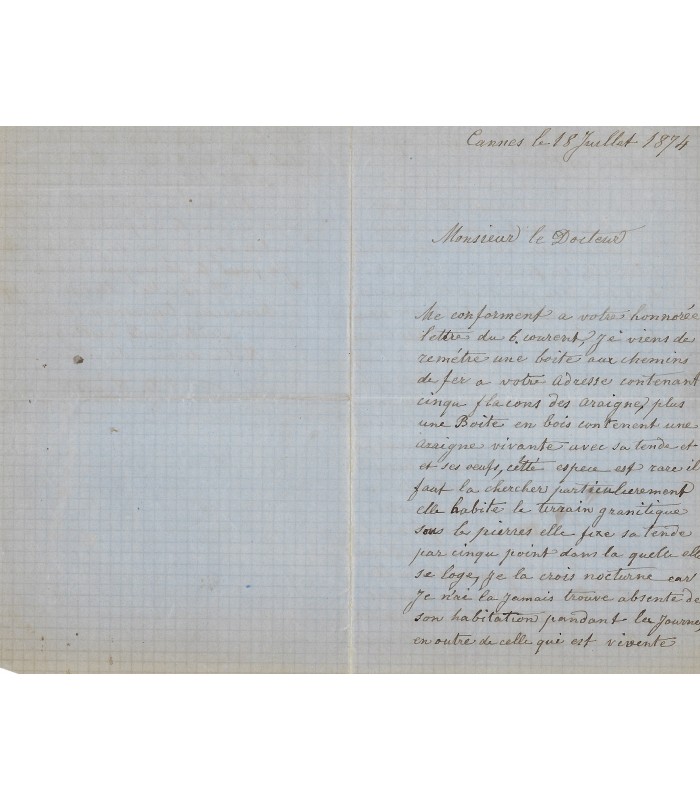 Cannes le 18 Juillet 1874
Monsieur le Docteur
Me conforment a votre honnorée
lettre du 6 courent, Je viens de
remétre une boite aux chemins
de fer a votre adresse contenant
cinqu flacons des araigne, plus
une Boite en bois contenent une
araigne vivante avec sa tende et
et ses oeufs, cette espece est rare il
faut la chercher particulierement
elle habite le terrain granitique
sous les pierres elle fixe sa tende
par cinqu point dans la quelle elle
se loge, je la crois nocturne car
Je n'ai la jamais trouve absente de
son habitation pandant la Journe
en outre de celle qui est vivente